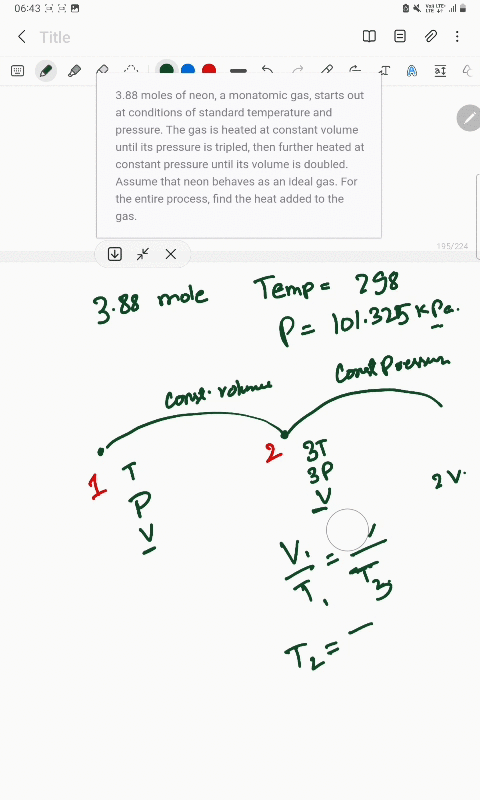 06:43
Title
3.88 moles of neon, a monatomic gas, starts out
at conditions of standard temperature and
pressure. The gas is heated at constant volume
until its pressure is tripled, then further heated at
constant pressure until its volume is doubled.
Assume that neon behaves as an ideal gas. For
the entire process, find the heat added to the
gas.
195/224
3.88 mole
Temp = 298
P = 101.325 KPa.
Const. volume
Const Pressure
1
T
P
V
2
3T
3P
V
2V.
V₁
T₁
=
T₂
T₂ =